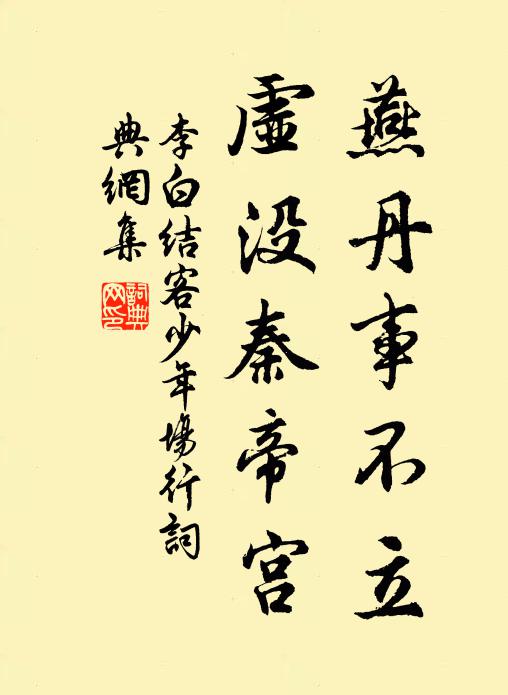 燕丹事不立
虚没秦帝宫
李白结客少年場行詞
典網集
詞典
网印